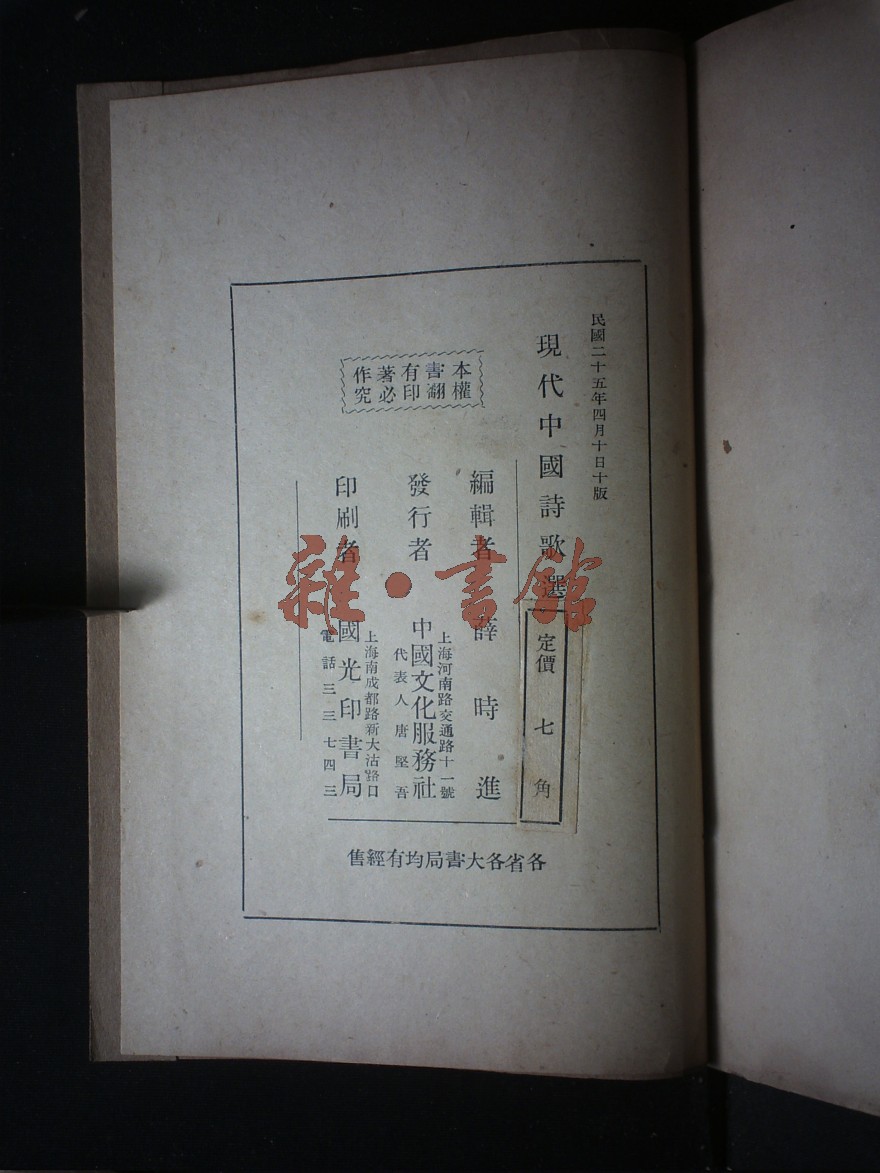 民國二十五年四月十日十版
現代中國詩歌選
定價 七角
編輯者 薛時進
發行者 中國文化服務社
上海河南路交通路十一號
代表人唐堅吾
印刷者 國光印書局
上海南成都路新大沽路口
電話三三七四三
本書有著作
權翻印必究
各省各大書局均有經售
雜·書館